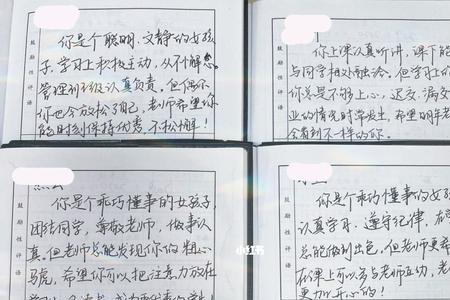 鼓励性评语
你是个聪明、文静的女孩
子,学习上积极主动,从不懈怠
管理班级认真负责,但偶尔
你也会放松了自己,老师希望你
能时刻保持优秀,不松懈!
鼓励性评语
你上课认真听讲,课下能
与同学相处融洽。但学习上
你总是不够上心,迟交、漏交
业的情况时常发生,希望明年
会看到不一样的你。
鼓励性评语
你是个乖巧懂事的女孩子,
团结同学,尊敬老师,做事认
真。但老师总能发现你的粗心
马虎,希望你可以把注意力放在
小红书
鼓励性评语
你是个乖巧懂事的女
认真学习、遵守纪律,在
总能做到出色,但老师更希
在课上可以多与老师互动,老
更加开心的!